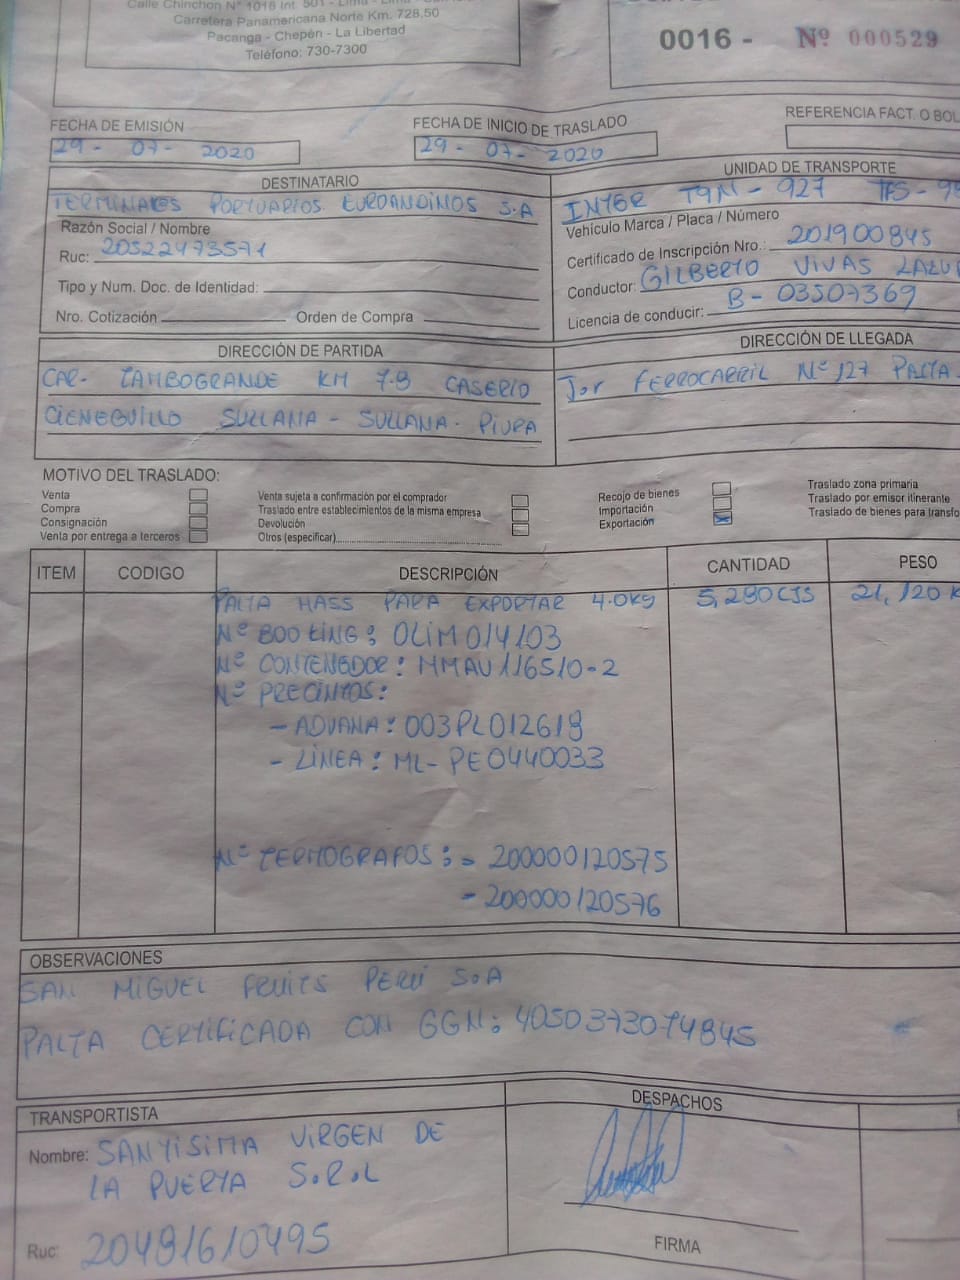 Calle Chinchon N° 1018 Int. 501 - Lima - Lima -
Carretera Panamericana Norte Km. 728,50
Pacanga - Chepén - La Libertad
Teléfono: 730-7300
0016 - Nº 000529
FECHA DE EMISIÓN
29 - 07 - 2020
FECHA DE INICIO DE TRASLADO
29 - 07 - 2020
REFERENCIA FACT. O BOL
DESTINATARIO
TERMINALES PORTUARIOS EUROANDINOS S.A
Razón Social / Nombre
Ruc: 20522473571
Tipo y Num. Doc. de Identidad:
Nro. Cotización Orden de Compra
UNIDAD DE TRANSPORTE
INTER T9N - 927
Vehículo Marca / Placa / Número
Certificado de Inscripción Nro.: 201900845
Conductor: GILBERTO VIVAS
Licencia de conducir: B - 03507369
DIRECCIÓN DE PARTIDA
CAR- TAMBOGRANDE KM 7.8 CASERIO
CIENEGUILLO SULLANA - SULLANA - PIURA
DIRECCIÓN DE LLEGADA
Jor FERROCARRIL Nº 127 PAITA -
MOTIVO DEL TRASLADO:
Venta
Compra
Consignación
Venta por entrega a terceros
Venta sujeta a confirmación por el comprador
Traslado entre establecimientos de la misma empresa
Devolución
Otros (especificar)
Recojo de bienes
Importación
Exportación
Traslado zona primaria
Traslado por emisor itinerante
Traslado de bienes para transfo
ITEM CODIGO DESCRIPCIÓN CANTIDAD PESO
PALTA HASS PARA EXPORTAR 4.0Kg 5,280CJS 21,120 K
Nº BOOKING: OLIM014103
Nº CONTENEDOR: MMAU116510-2
Nº PRECINTOS:
- ADUANA: 003PL012618
- LÍNEA: ML-PE0440033
Nº TERMOGRAFOS: - 200000120575
- 200000120576
OBSERVACIONES
SAN MIGUEL FRUITS PERÚ S.A
PALTA CERTIFICADA CON GGN: 4050373074845
TRANSPORTISTA
Nombre: SANTISIMA VIRGEN DE
LA PUERTA S.R.L
Ruc: 20481610495
DESPACHOS
FIRMA